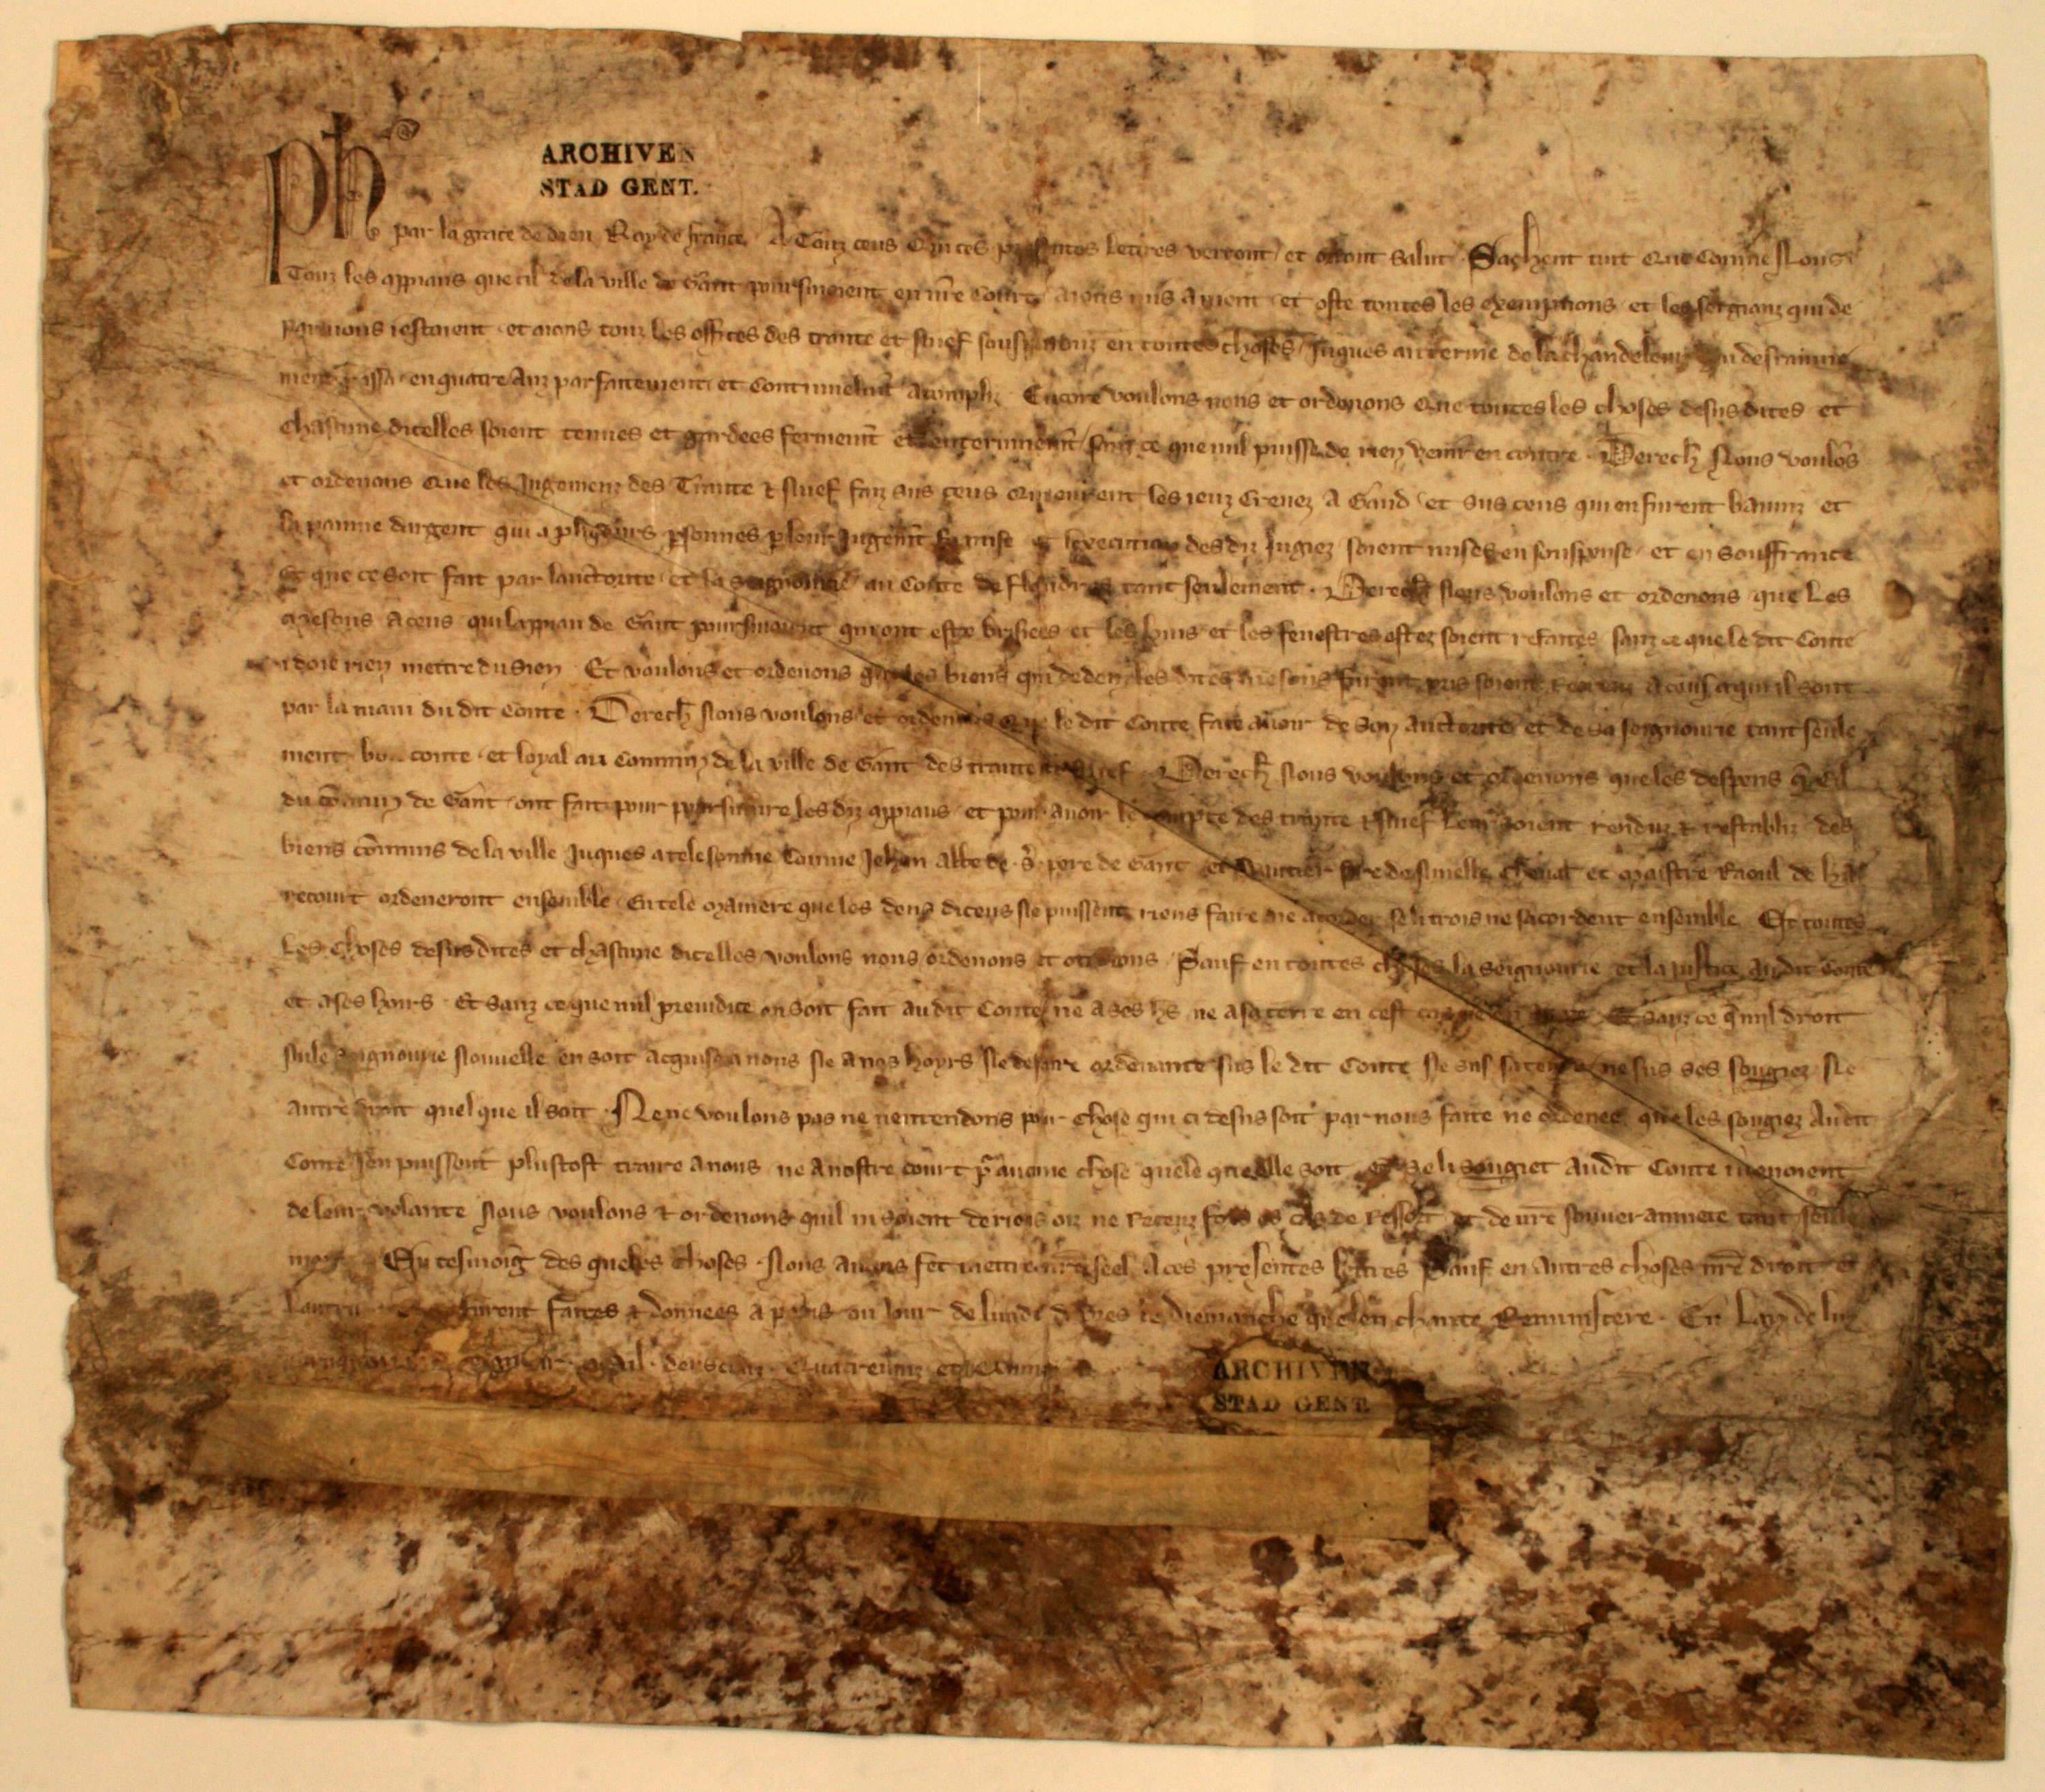 ARCHIVEN
STAD GENT.
Ph'
par la grace de dieu Roy de france. A Touz ceus Qui ces presentes letres verront et orront Salut. Sachent tuit Que Comme Nous
Touz les appiaus que cil de la ville de Gant poursuivoient en nr̄e Court aions mis a nient et oste toutes les exemptions et les sergianz qui de
par nous i estoient et aions touz les offices des trante et Nuef souspenduz en toutes choses Juques au terme de la chandeleur
passa en quatre Anz parfaitement et Continuelmt̄ acompliz. Encore voulons nous et ordenons Que toutes les choses desus dites et
chascune dicelles soient tenues et gardees fermemt̄ et enterinemt̄ sanz ce que nul puisse de rien venir en contre. Derech̄ Nous voulōs
et ordenons Que les Jugemenz des Trante & Nuef faiz sus ceus qui eurent les ieuz Crevez A Gand et sus ceus qui en furent baniz et
la painne dargent qui a plusieurs psonnes p leur Jugemt̄ fu mise et lexecution des diz Jugiez soient mises en souspense et en souffrance
Et que ce soit fait par lauctorite et la seignourie au Conte de flandres tant seulement. Derech̄ Nous voulons et ordenons que Les
mesons a ceus qui lapiau de Gant poursuivoient qui ont este brisiees et les huis et les fenestres ostez soient refaites sanz ce que le dit Conte
i doie rien mettre du sien. Et voulons et ordenons que les biens qui dedenz les dites mesons furent pris soient renduz a ceus a qui il sont
par la main du dit Conte. Derech̄ Nous voulons et ordenons Que le dit Conte face avoir de son auctorite et de sa seignourie tant seule
ment bon conte et loyal au Commun de la ville de Gant des trante et Nuef. Derech̄ Nous voulons et ordenons que les despens q̄ cil
du cōmun de Gant ont faiz pour poursuivre les diz appiaus et pour avoir le compte des trante & Nuef leur soient renduz & restabliz des
biens cōmuns de la ville Juques a tele somme Comme Jehan Abbe de S. pere de Gant et Gautier sire de Nivelle cheval' et Maistre Raoul de ha
recourt ordeneront ensemble. En tele maniere que les deus diceus Ne puissent riens faire ne acorder se li trois ne sacordent ensemble. Et toutes
Les choses desus dites et chascune dicelles voulons nous ordenons et otroions. Sauf en toutes choses la seignourie et la justice au dit Conte
et a ses hoirs. Et Sanz ce que nul preiudice en soit fait au dit Conte ne a ses hs ne a sa terre en cest cas ne en autre Et sanz ce q̄ nul droit
Nule Seignourie Nouvelle en soit acquise a nous Ne a nos hoyrs Ne de faire ordenance sus le dit Conte Ne sus sa terre ne sus ses sougiez Ne
autre droit quel que il soit. Ne ne voulons pas ne nentendons pour chose qui ci desus soit par nous faite ne ordenee que les sougiez Au dit
Conte sen puissent plustost traire a nous ne a nostre court p̄ aucune chose quele que elle soit et se li sougiet au dit Conte i venoient
de leur volante Nous voulons & ordenons quil ni soient de riens oiz ne receuz fors es cas de Ressort et de nr̄e souverainnete tant seule
ment. En tesmoig des queles choses Nous avons fet mettre nr̄e seel A ces presentes letres Sauf en autres choses nr̄e droit et
lautrui. furent faites & donnees a paris ou iour de lundi apres le diemanche que len chante Reminiscere. En Lan de lin
Mil. deus cenz. Quatrevinz et
ARCHIVEN
STAD GENT.